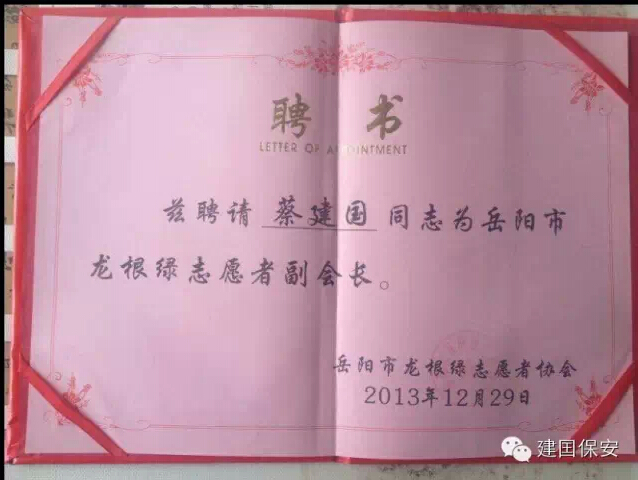 聘书
LETTER OF APPOINTMENT
兹聘请 蔡建国 同志为岳阳市
龙根绿志愿者副会长。
岳阳市龙根绿志愿者协会
2013年12月29日
建国保安